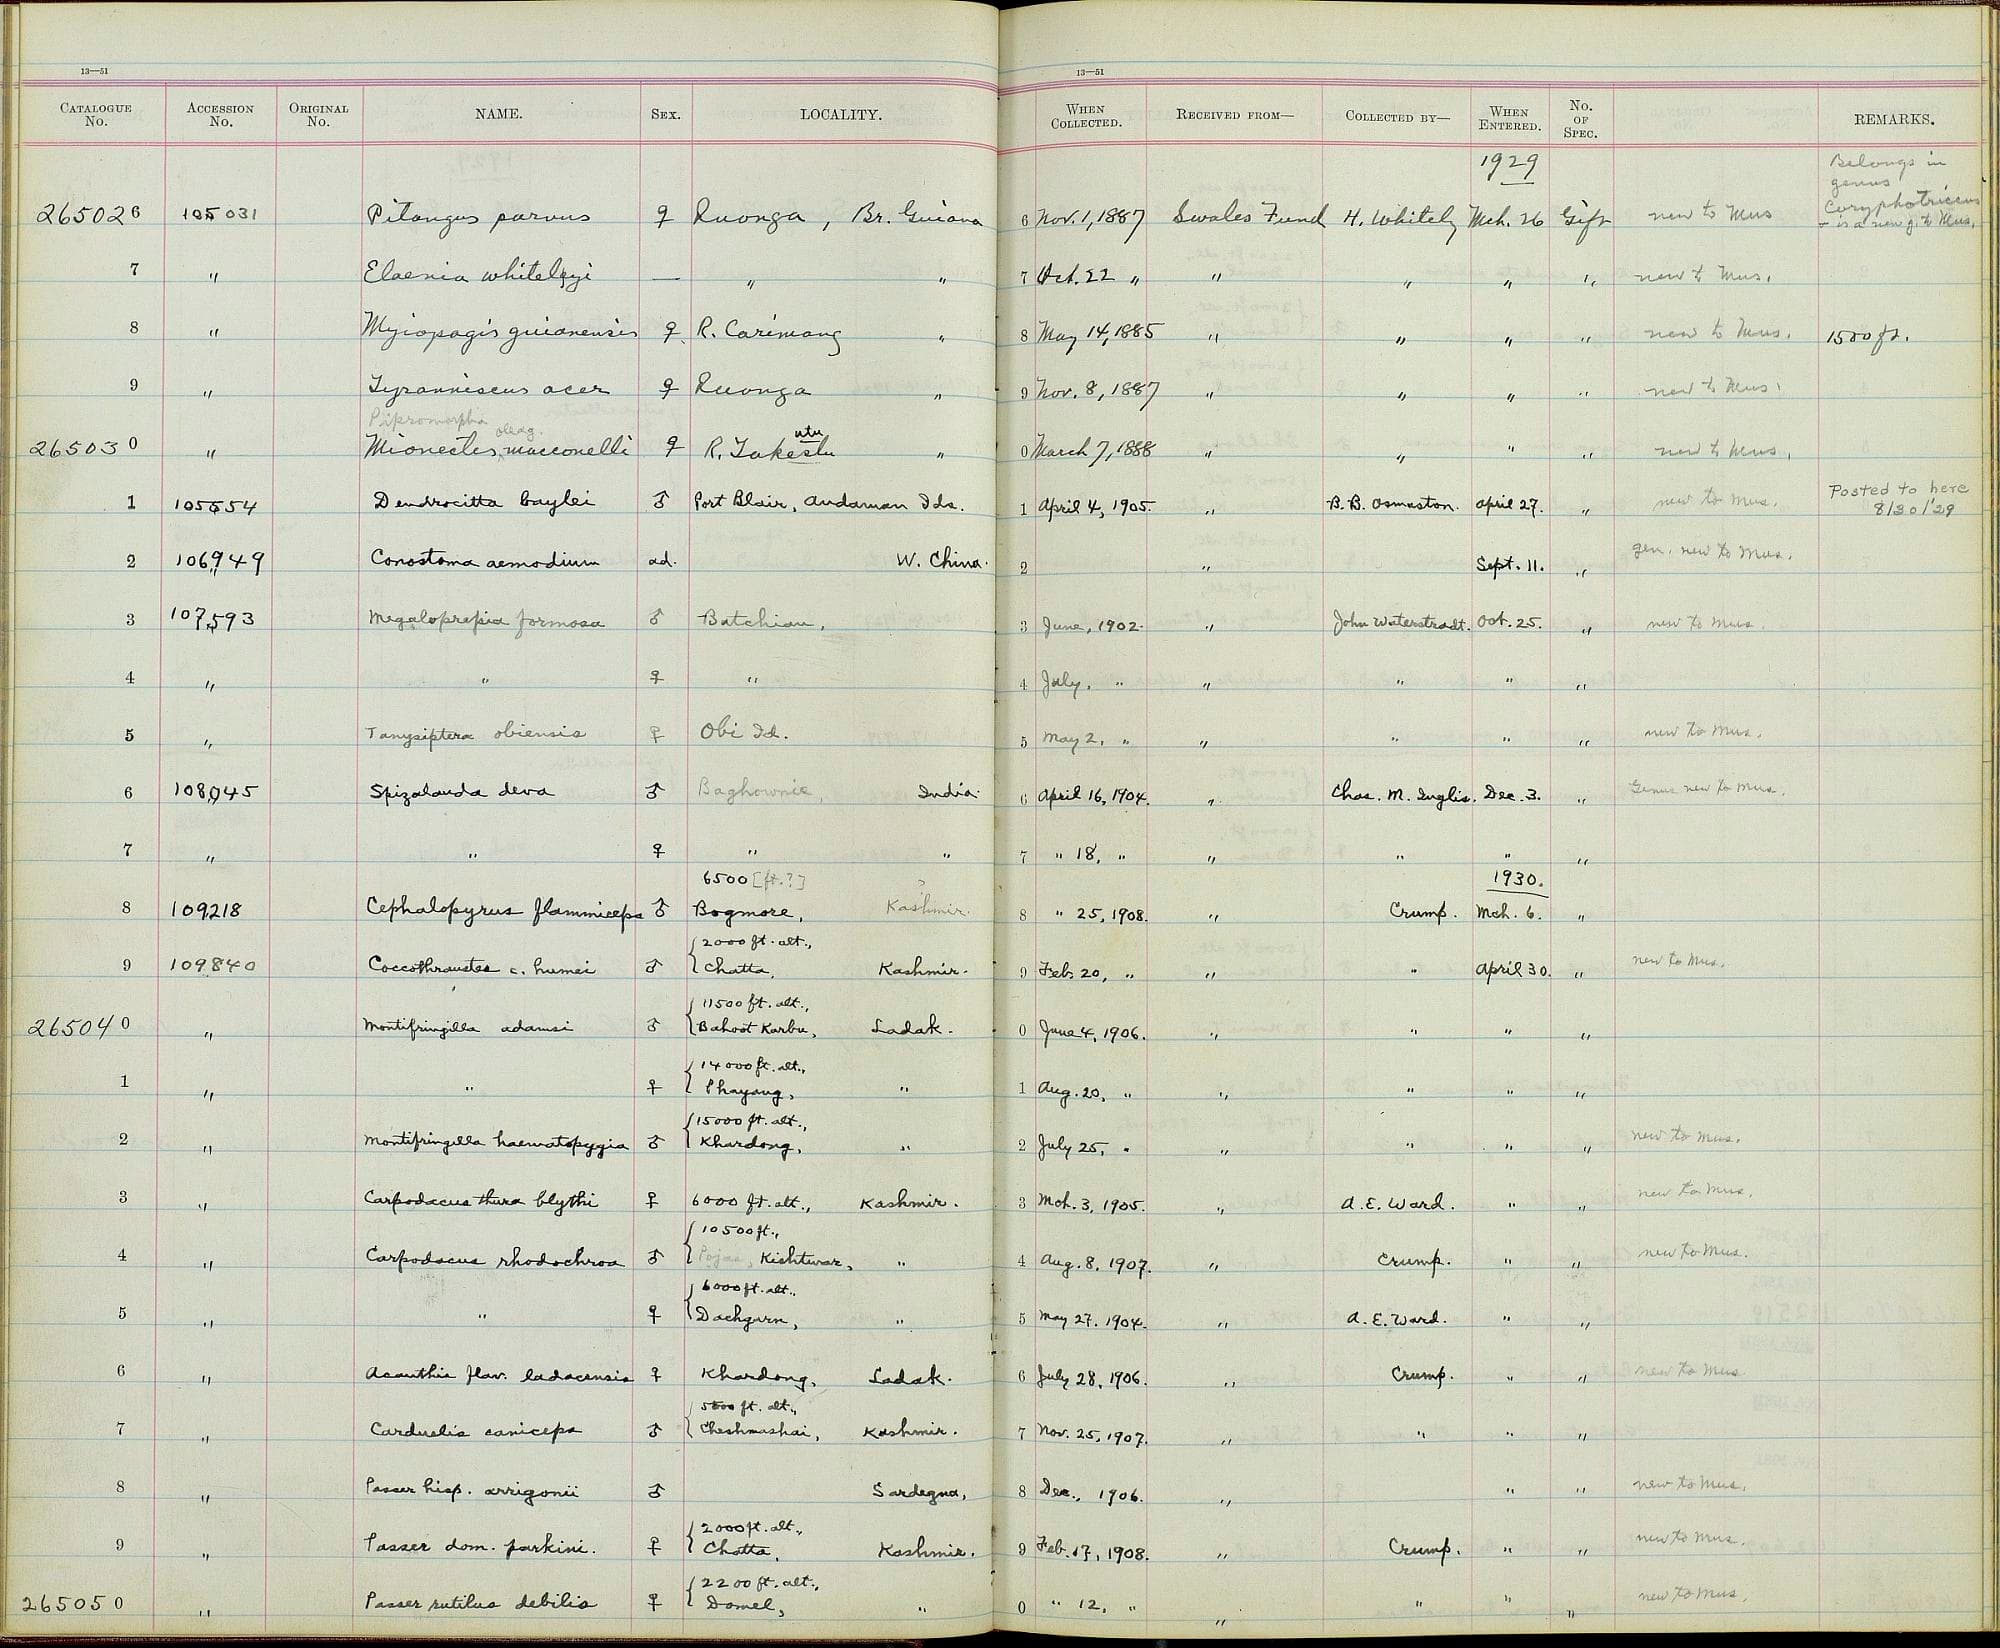 13—51
13—51
CATALOGUE No. ACCESSION No. ORIGINAL No. NAME. SEX. LOCALITY. WHEN COLLECTED. RECEIVED FROM— COLLECTED BY— WHEN ENTERED. No. OF SPEC. REMARKS.
1929
Belongs in
genus
Coryphotriccus
265026 105031 Pitangus parvus ♀ Ruonga, Br. Guiana 6 Nov. 1, 1887 Swales Fund H. Whitely Mch. 26 Gift new to Mus + is a new g. to Mus.
7 " Elaenia whitelyi — " " 7 Oct. 22 " " " " " new to Mus.
8 " Myiopagis guianensis ♀ R. Carimang " 8 May 14, 1885 " " " " new to Mus. 1500 ft.
9 " Tyranniscus acer ♀ Ruonga " 9 Nov. 8, 1887 " " " " new to Mus.
Pipromorpha oleag. utu
265030 " Mionectes macconelli ♀ R. Takestu " 0 March 7, 1888 " " " " new to Mus.
1 105554 Dendrocitta baylei ♂ Port Blair, Andaman Ids. 1 April 4, 1905. " B. B. Osmaston. April 27. " new to Mus. Posted to here
8/30/'29
2 106949 Conostoma aemodium ad. W. China. 2 " Sept. 11. " gen. new to Mus.
3 107593 Megaloprepia formosa ♂ Batchian, 3 June, 1902. " John Waterstradt. Oct. 25. " new to Mus.
4 " " ♀ " 4 July, " " " " "
5 " Tanysiptera obiensis ♀ Obi Id. 5 May 2, " " " " " new to Mus.
6 108045 Spizalauda deva ♂ Baghownie, India. 6 April 16, 1904. " Chas. M. Inglis. Dec. 3. " Genus new to Mus.
7 " " ♀ " " 7 " 18, " " " " "
6500 [ft.?] ? 1930.
8 109218 Cephalopyrus flammiceps ♂ Bogmore, Kashmir. 8 " 25, 1908. " Crump. Mch. 6. "
2000 ft. alt.,
9 109840 Coccothraustes c. humei ♂ Chatta, Kashmir. 9 Feb. 20, " " " April 30. " new to Mus.
11500 ft. alt.,
265040 " Montifringilla adamsi ♂ Bahoot Karbu, Ladak. 0 June 4, 1906. " " " "
14000 ft. alt.,
1 " " ♀ Phayang, " 1 Aug. 20, " " " " "
15000 ft. alt.,
2 " Montifringilla haematopygia ♂ Khardong, " 2 July 25, " " " " " new to Mus.
3 " Carpodacus thura blythi ♀ 6000 ft. alt., Kashmir. 3 Mch. 3, 1905. " A. E. Ward. " " new to Mus.
10500 ft.,
4 " Carpodacus rhodochroa ♂ Kishtwar, " 4 Aug. 8, 1907. " Crump. " " new to Mus.
6000 ft. alt.,
5 " " ♀ Dachgurn, " 5 May 27. 1904. " A. E. Ward. " "
6 " Acanthis flav. ladacensis ♀ Khardong, Ladak. 6 July 28, 1906. " Crump. " " new to Mus
5800 ft. alt.,
7 " Carduelis caniceps ♂ Cheshmashai, Kashmir. 7 Nov. 25, 1907. " " " "
8 " Passer hisp. arrigonii ♂ Sardegna, 8 Dec., 1906. " " " new to Mus.
2000 ft. alt.,
9 " Passer dom. parkini. ♀ Chatta, Kashmir. 9 Feb. 17, 1908. " Crump. " " new to Mus.
2200 ft. alt.,
265050 " Passer rutilus debilis ♀ Domel, " 0 " 12, " " " " " new to Mus.